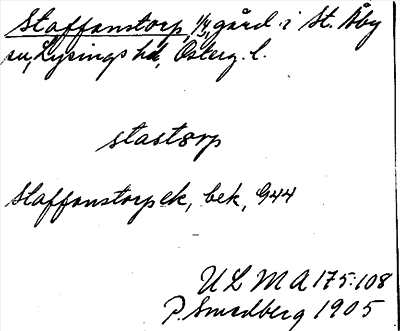 Staffanstorp, 1/4, gård i St. Åby
sn, Lysings hd, Österg. l.
stastorp
Staffanstorp ek, bek, G44
ULMA 175:108
P. Smedberg 1905